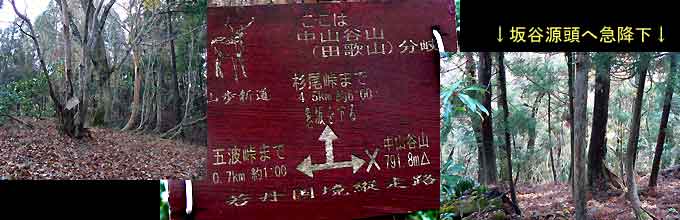 ここは
中山谷山
(田歌山)分岐
山歩新道
杉尾峠まで
4.5km 約6:00
五波峠まで
0.7km 約1:00
中山谷山
791.8m△
若丹国境縦走路
↓坂谷源頭へ急降下↓